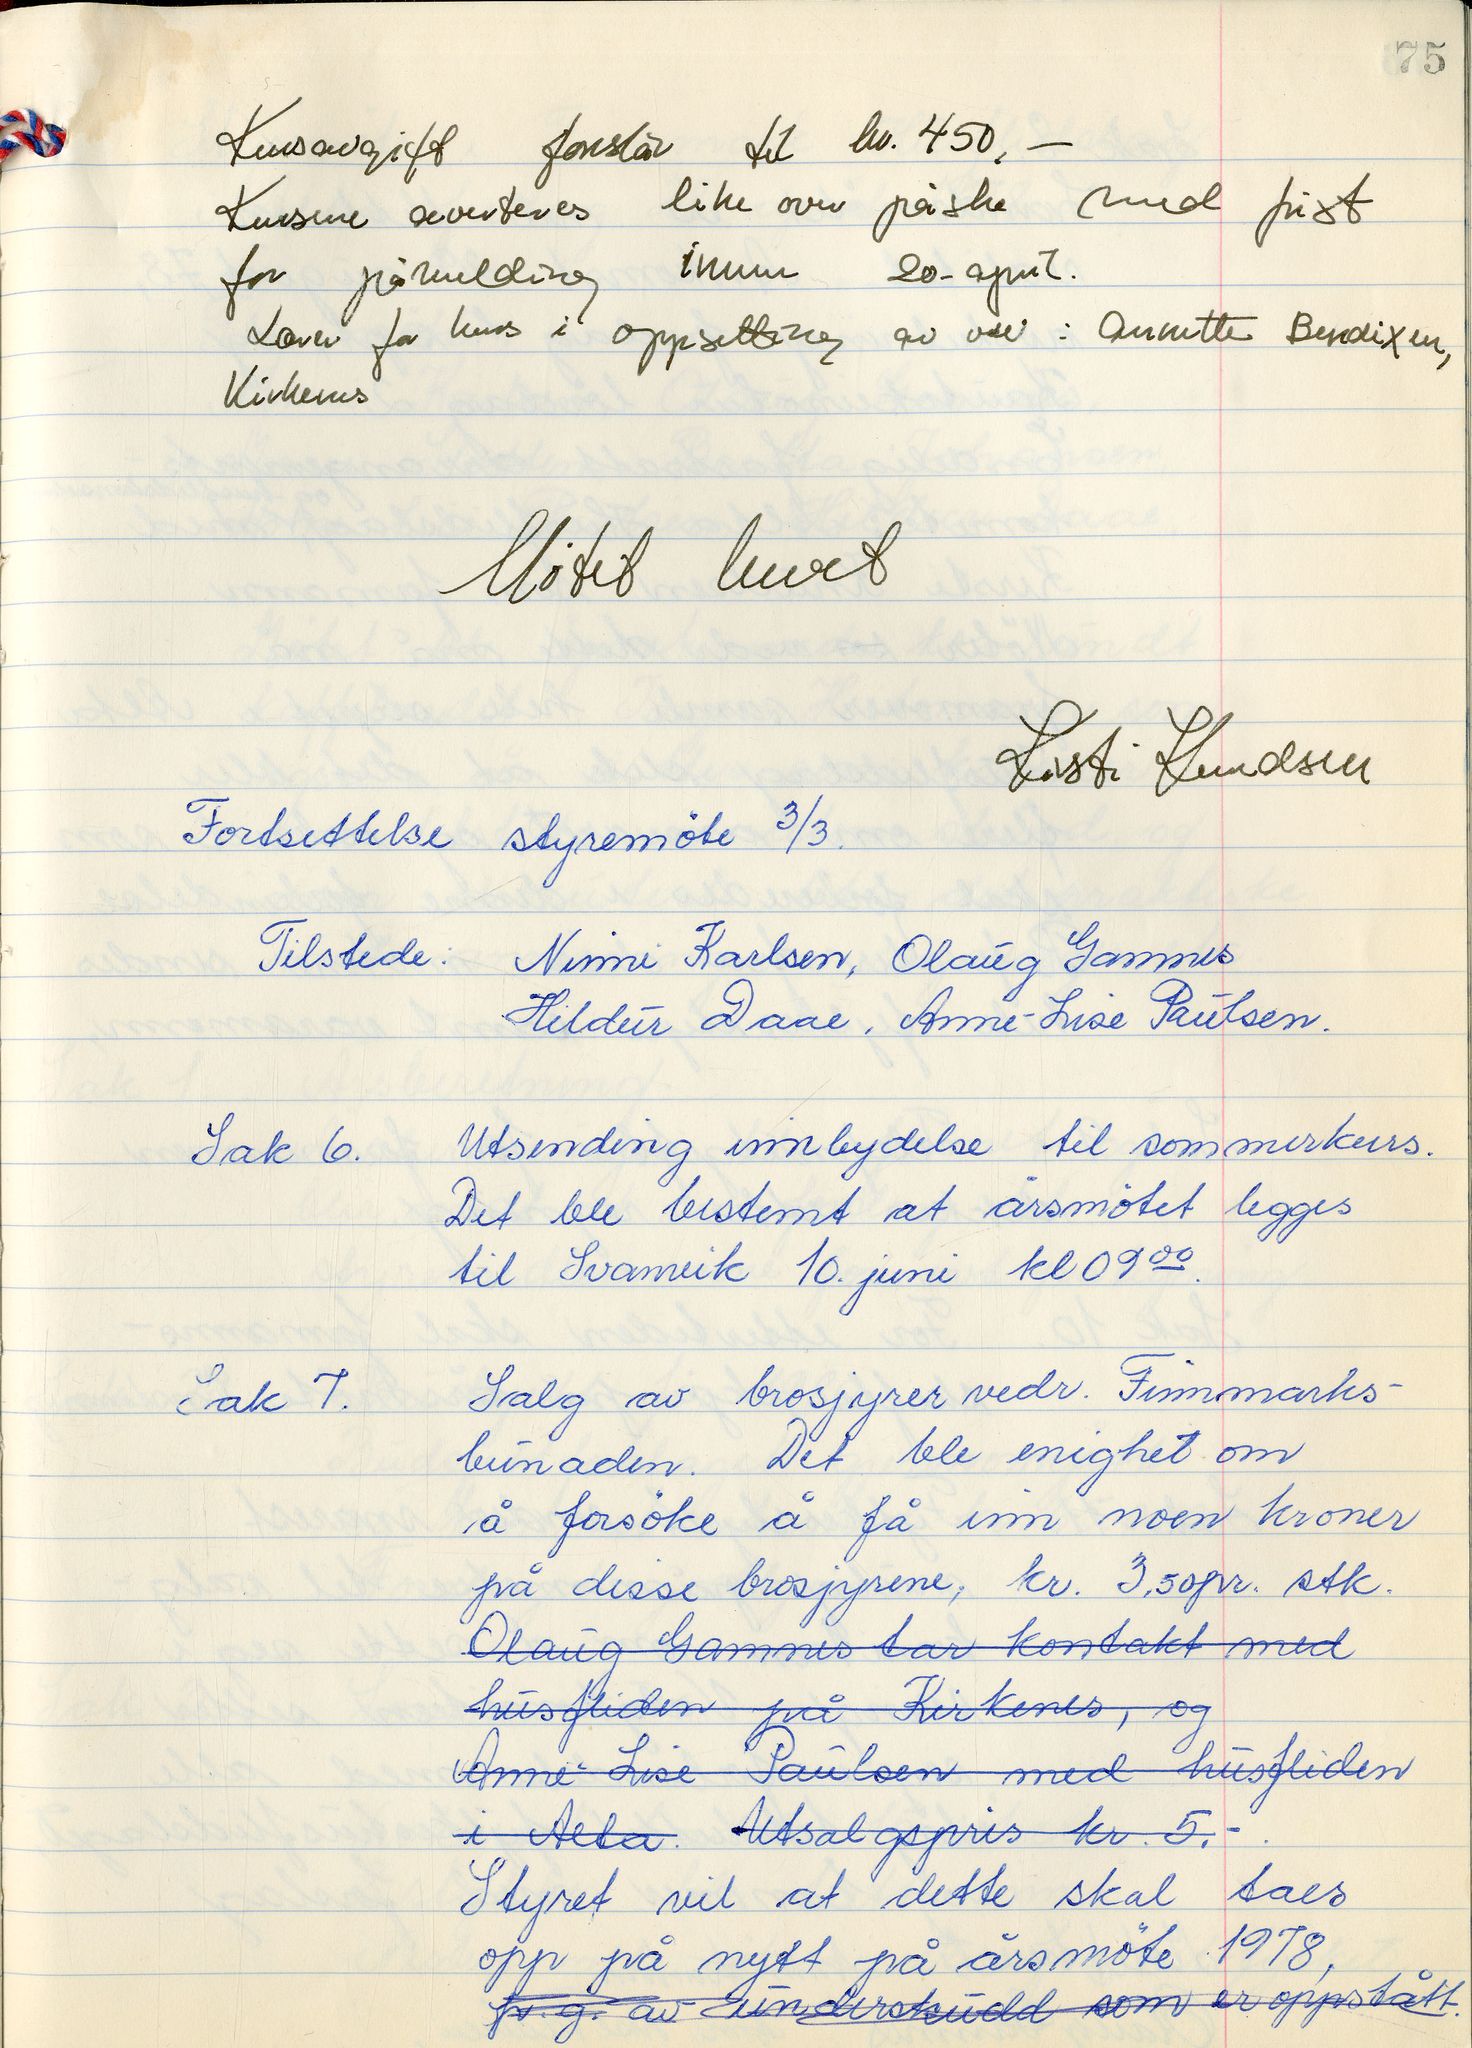 75
Kursavgift foreslår til kr. 450,-
Kursene averteres like over påske med frist
for påmelding innen 20. april.
Lærer for kurs i oppsetting av vev : Annette Bendixen,
Kirkenes
Møtet hevet
Kirsti Knudsen
Fortsettelse styremöte 3/3.
Tilstede: Ninni Karlsen, Olaug Gamnes
Hildur Daae, Anne-Lise Paulsen.
Sak 6. Utsending innbydelse til sommerkurs.
Det ble bestemt at årsmötet legges
til Svanvik 10. juni kl 09 00.
Sak 7. Salg av brosjyrer vedr. Finnmarks-
bunaden. Det ble enighet om
å forsöke å få inn noen kroner
på disse brosjyrene, kr. 3,50 pr. stk.
Olaug Gamnes tar kontakt med
husfliden på Kirkenes, og
Anne-Lise Paulsen med husfliden
i Alta. Utsalgspris kr. 5.-.
Styret vil at dette skal taes
opp på nytt på årsmöte 1978,
p.g. av underskudd som er oppstått.